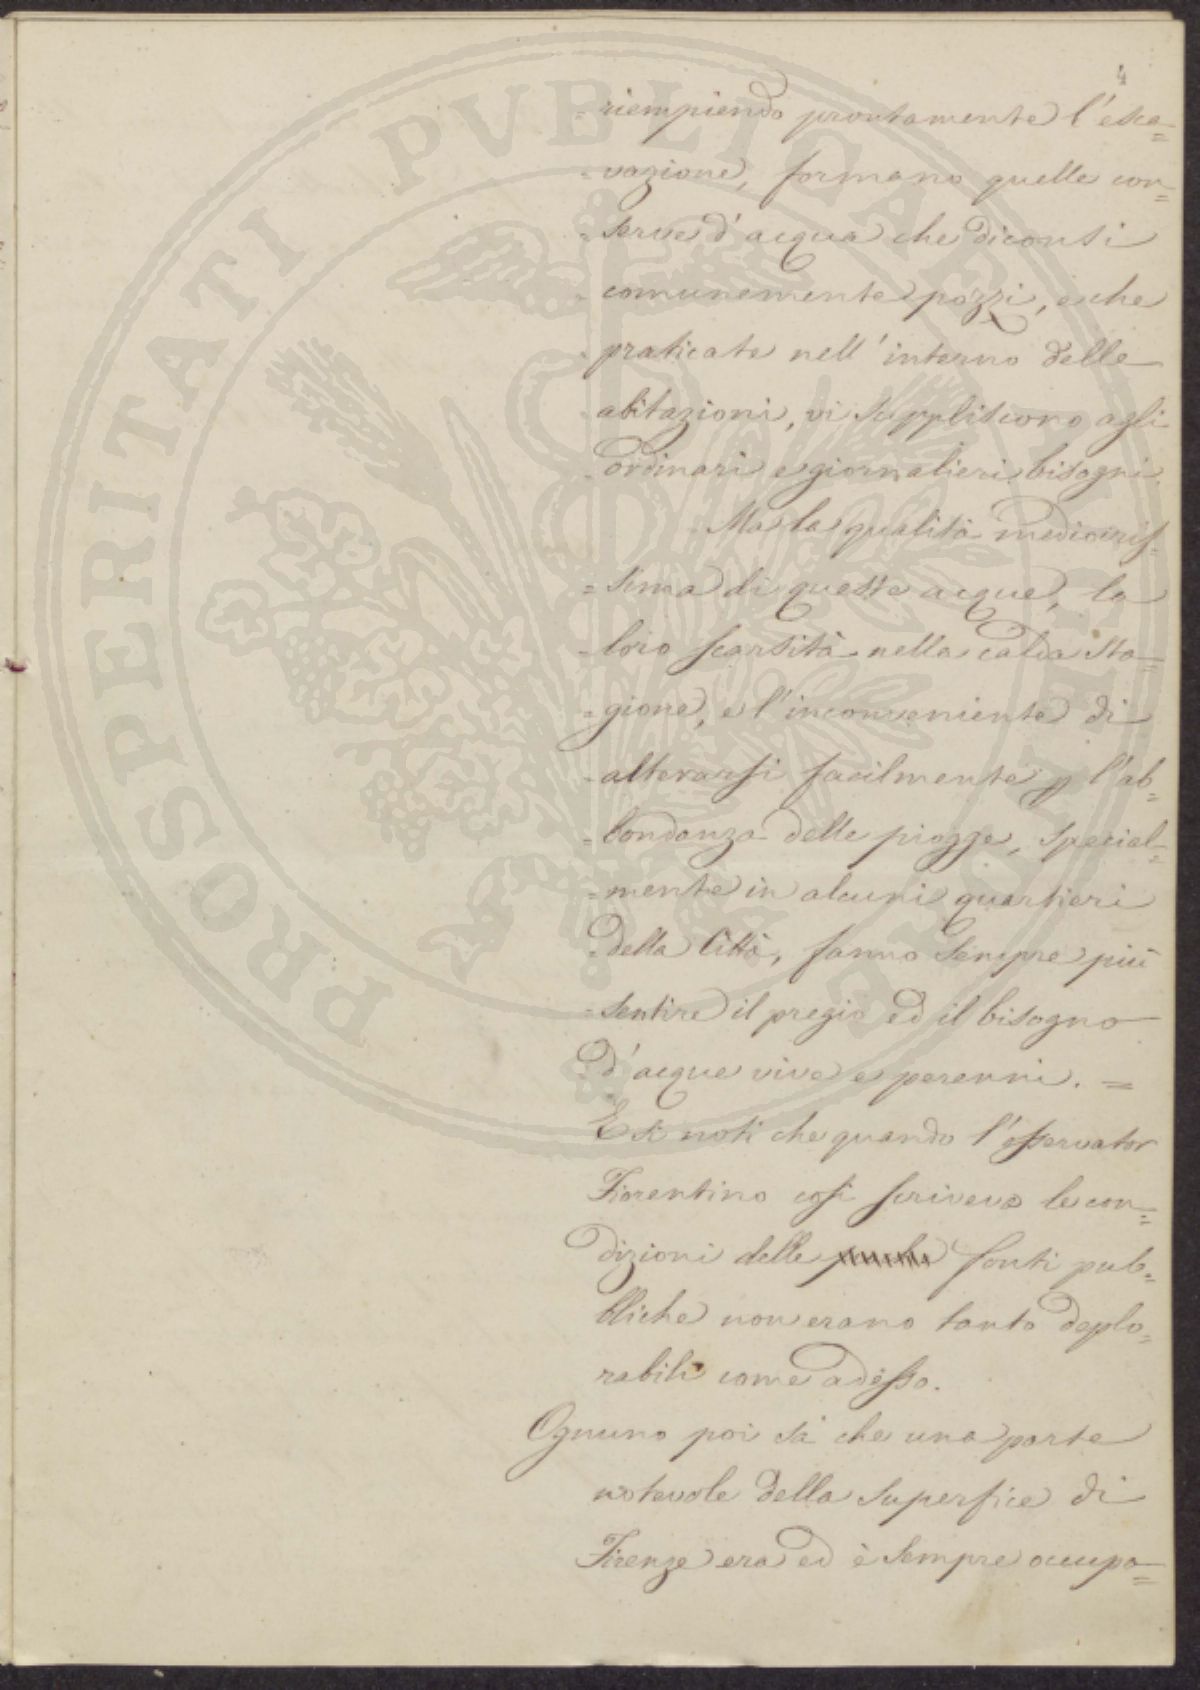 4
= riempiendo prontamente l'esca=
= vazione, formano quelle con=
= serve d'acqua che diconsi
= comunemente pozzi, e che
= praticate nell'interno delle
= abitazioni, vi suppliscono agli
= ordinari e giornalieri bisogni.
Ma la qualità mediocris=
= sima di queste acque, la
= loro scarsità nella calda sta=
= gione, e l'inconveniente di
= alterarsi facilmente p l'ab=
= bondanza delle piogge, special=
= mente in alcuni quartieri
= della Città, fanno sempre più
= sentire il pregio ed il bisogno
= d'acque vive e perenni. =
E si noti che quando l'osservator
Fiorentino così scriveva le con=
dizioni delle fonti pub=
bliche non erano tanto deplo=
rabili come adesso.
Ognuno poi sà che una parte
notevole della superfice di
Firenze era ed è sempre occupa=
PROSPERITATI PVBLICAE